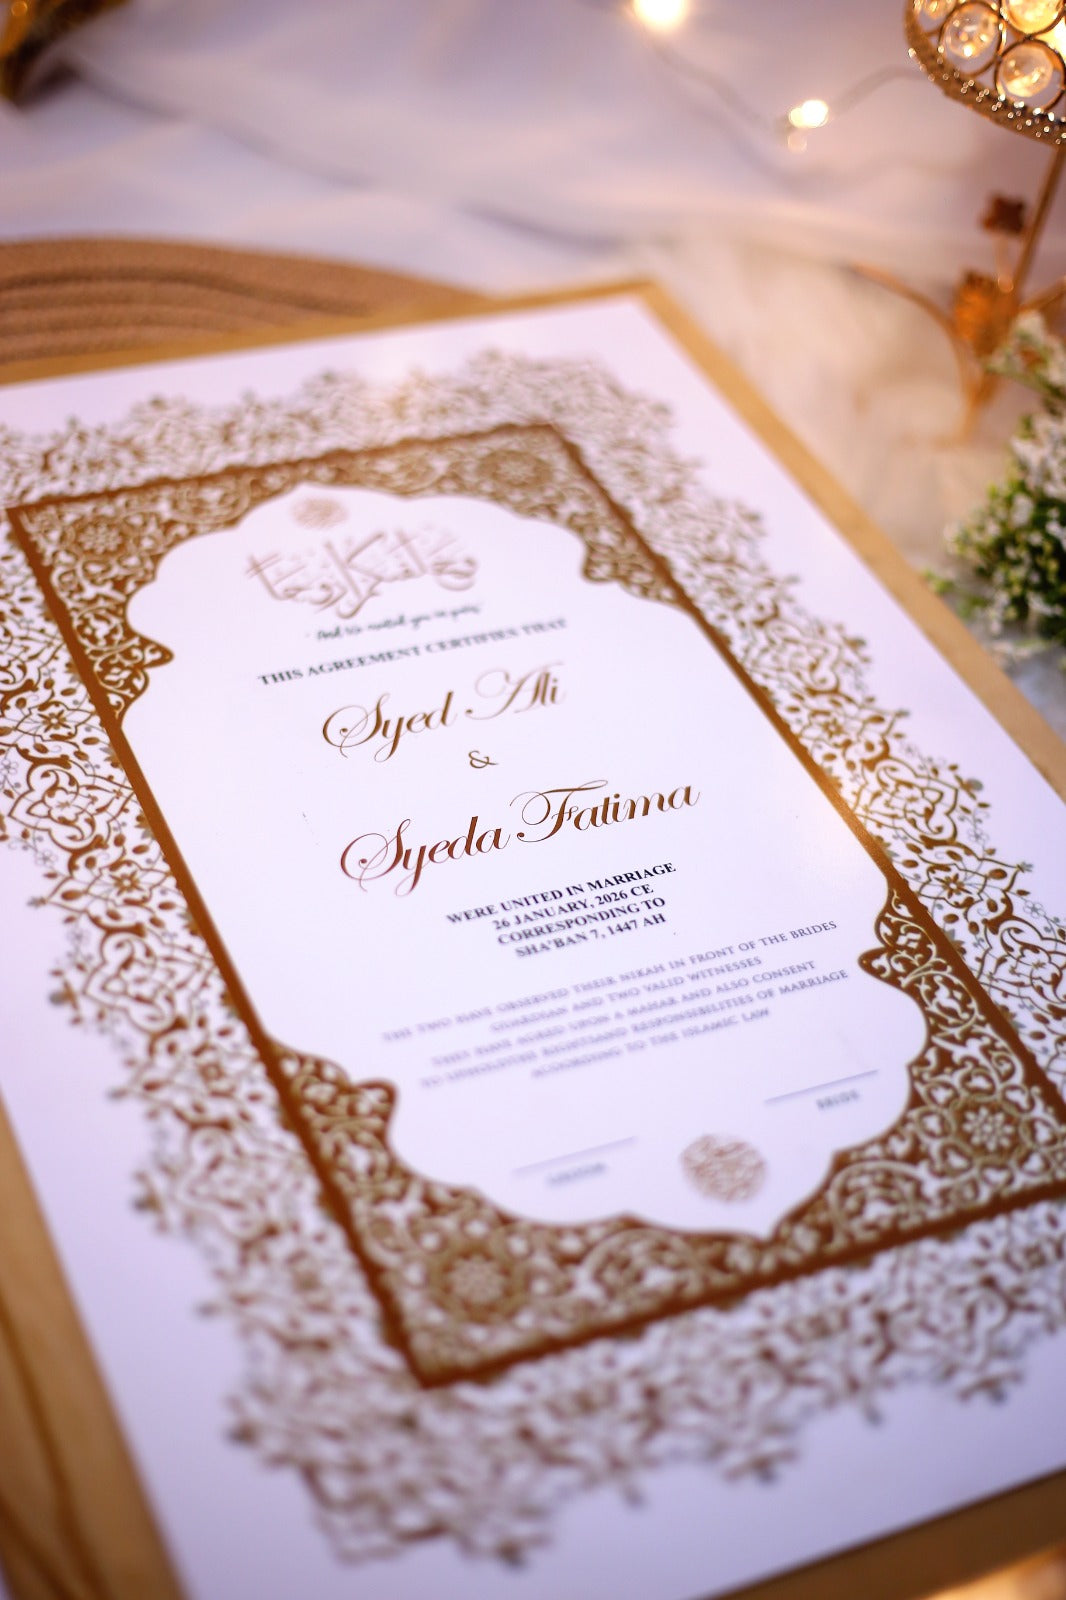 وخلقناكم أزواجا
" And We created you in pairs"
THIS AGREEMENT CERTIFIES THAT
Syed Ali
&
Syeda Fatima
WERE UNITED IN MARRIAGE
26 JANUARY, 2026 CE
CORRESPONDING TO
SHA'BAN 7, 1447 AH
THE TWO HAVE OBSERVED THEIR NIKAH IN FRONT OF THE BRIDES
GUARDIAN AND TWO VALID WITNESSES
THEY HAVE AGREED UPON A MAHAR AND ALSO CONSENT
TO UPHOLD THE RIGHTS AND RESPONSIBILITIES OF MARRIAGE
ACCORDING TO THE ISLAMIC LAW
BRIDE